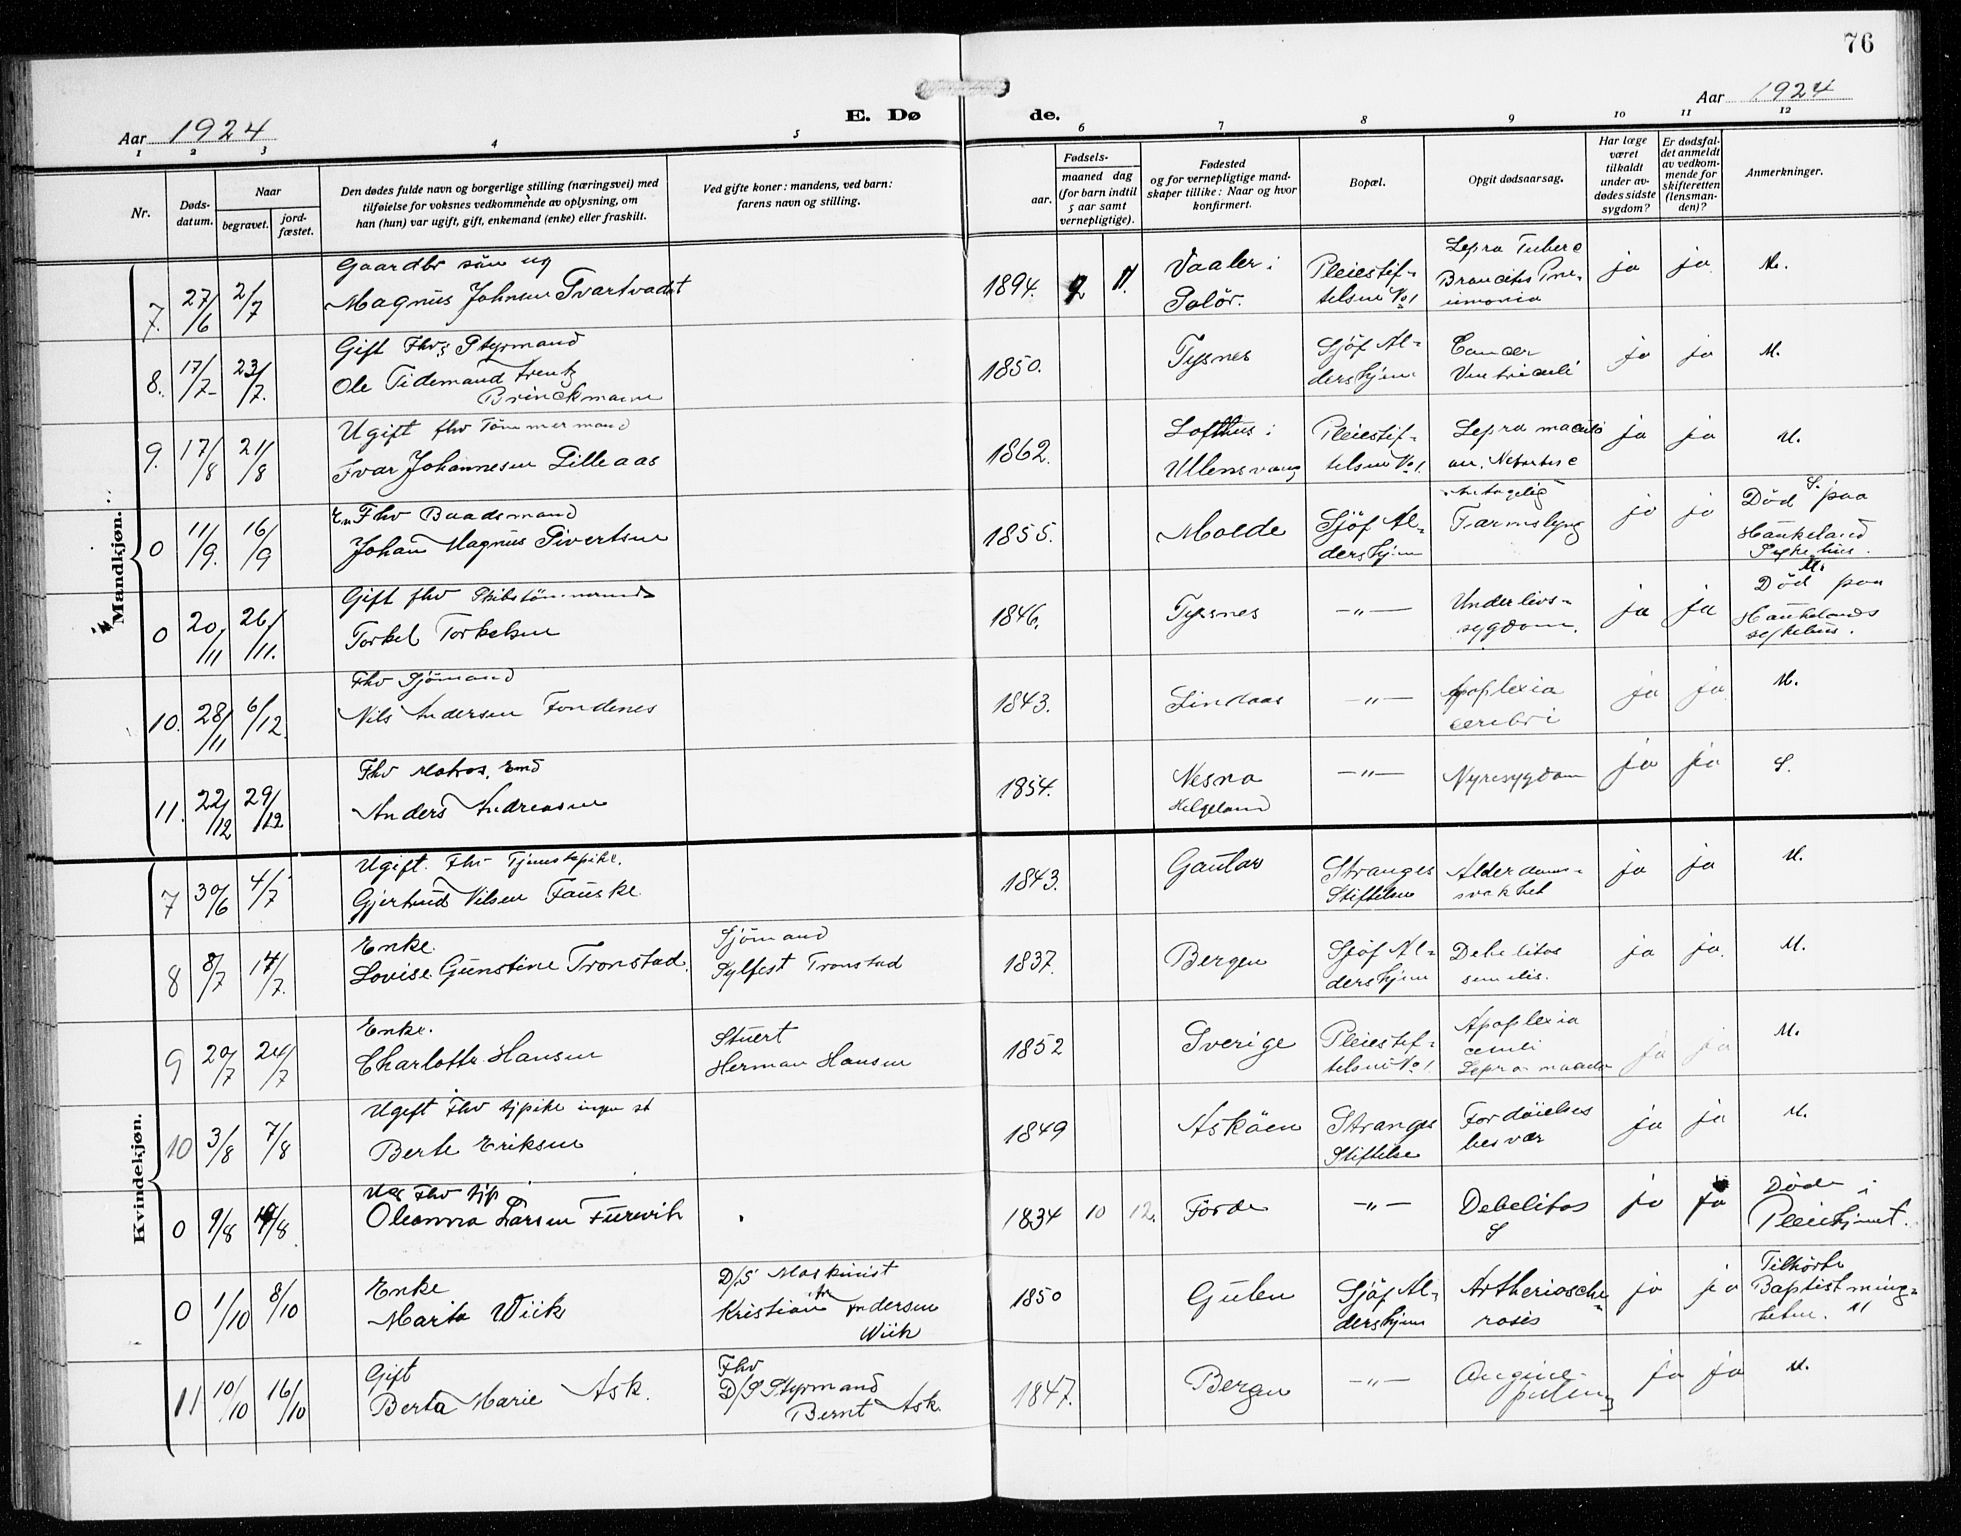 76
Aar 1924
E. Dø de.
Aar 1924
1 2 3 4 5 6 7 8 9 10 11 12
Nr.
Døds-
datum.
Naar
begravet.
jord-
fæstet.
Den dødes fulde navn og borgerlige stilling (næringsvei) med
tilføielse for voksnes vedkommende av oplysning, om
han (hun) var ugift, gift, enkemand (enke) eller fraskilt.
Ved gifte koner: mandens, ved barn:
farens navn og stilling.
Fødsels-
aar.
maaned dag
(for barn indtil
5 aar samt
vernepligtige).
Fødested
og for vernepligtige mand-
skaper tillike: Naar og hvor
konfirmert.
Bopæl.
Opgit dødsaarsag.
Har læge
været
tilkaldt
under av-
dødes sidste
sygdom?
Er dødsfal-
det anmeldt
av vedkom-
mende for
skifteretten
(lensman-
den)?
Anmerkninger.
Mandkjøn.
7. 27/6 2/7
Gaardbr søn ug
Magnus Johnsen Svartvadet
1894.
Vaaler i
Solör.
Pleiestif-
telsen No 1
Lepra Tuber
ja ja M.
8. 17/7 23/7.
Gift Fhv Styrmand
Ole Tidemand Frentz
Brinckmann
1850. Tysnes
Sjöf Al-
dershjem
Cancer
Ventriculi
ja ja M.
9. 17/8 21/8
Ugift fhv Tømmermand
Ivar Johannesen Lilleaas
1862.
Lofthus i
Ullensvang
Pleiestif-
telsen No 1.
Lepra
ja ja M.
0 11/9. 16/9
Em Fhv Baadsmand
Johan Magnus Sivertsen
1855. Molde
Sjöf Al-
dershjem
Antagelig
Tarmslyng
ja ja
S.
Död paa
Haukeland
Sykehus.
0 20/11 26/11.
Gift fhv Skibstømmermand
Torkel Torkelsen
1846. Tysnes —"—
Underlivs-
sygdom.
ja ja
M.
Død paa
Haukelands
sykehus.
10. 28/11 6/12
Fhv Sjömand
Nils Andersen Fondenes
1843. Lindaas —"—
Apoplexia
cerebri
ja ja M.
11. 22/12 29/12
Fhv Matros, Emd
Anders Andreasen
1854.
Nesna
Helgeland
—"— Nyresygdom ja ja S.
Kvindekjøn.
7 30/6 4/7
Ugift. Fhv Tjenestepike.
Gjertrud Nilsen Fauske
1843. Gaular
Stranges
Stiftelsen
Alderdoms-
svakhet
ja ja M.
8 8/7 14/7.
Enke.
Lovise Gunstine Tronstad.
Sjömand
Sylfest Tronstad
1837. Bergen
Sjöf Al-
dershjem
Debelitas
senilis.
ja ja. M.
9 20/7 24/7
Enke.
Charlotte Hansen
Stuert
Herman Hansen
1852 Sverige
Pleiestif-
telsen No 1.
Apoplexia
Lepra
ja ja M.
10 3/8 7/8
Ugift Fhv tjpike ingen st
Berte Eriksen
1849 Asköen
Stranges
Stiftelse
Fordöielses
besvær
ja ja M.
0 9/8 14/8.
Ug Fhv tjp
Oleanna Larsen Furevik
1834 10 12. Förde —"—
Debelitas
S
ja ja
Døde i
Pleiehjemmet.
0 1/10 8/10
Enke
Marta Wiik
D/S Maskinist
Kristian Andersen
Wiik
1850 Gulen
Sjöf Al-
dershjem
Artheriosche-
rosis
ja ja
Tilhörte
Baptistmenig-
heten. M
11 10/10 16/10
Gift
Berta Marie Ask.
Fhv
D/S Styrmand
Bernt Ask.
1847. Bergen —"—
Angine
ja ja M.